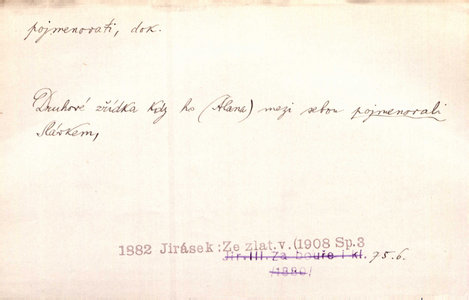 pojmenovati, dok.
Druhové zřídka kdy ho (Alana) mezi sebou pojmenovali
Slávkem,
1882 Jirásek: Ze zlat.v.(1908 Sp.3
Jir.III.Za bouře i kl. 75.6.
/1880/